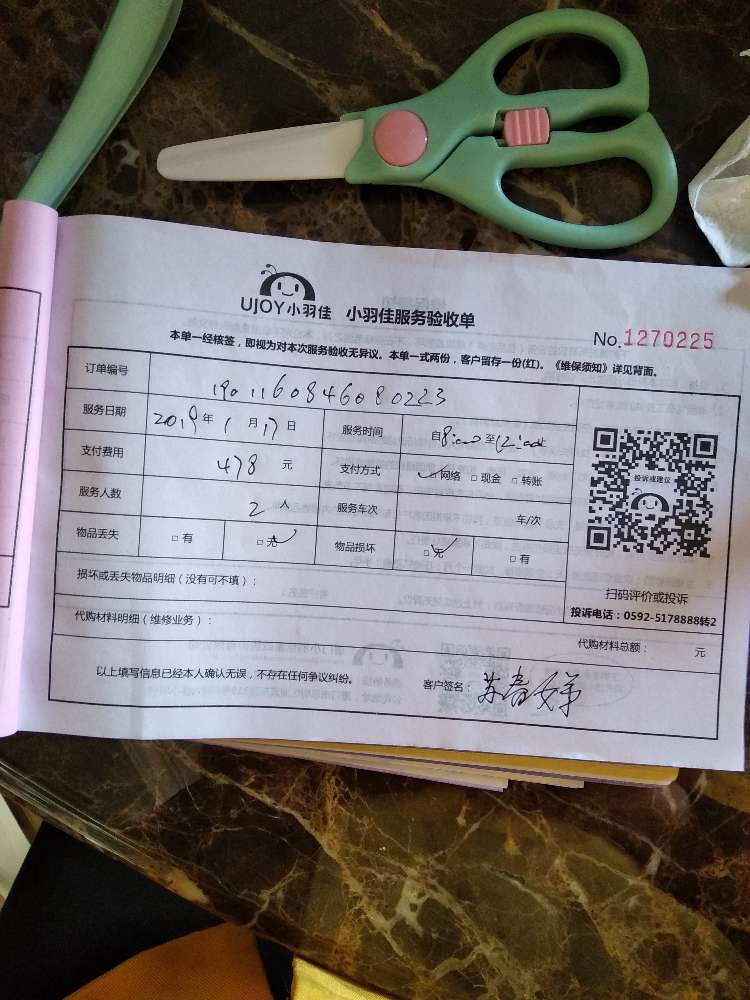 UJOY小羽佳 小羽佳服务验收单
No.1270225
本单一经核签，即视为对本次服务验收无异议。本单一式两份，客户留存一份(红)。《维保须知》详见背面。
订单编号 1901160846080223
服务日期 2019年1月17日 服务时间 自8:00至12:00
支付费用 478元 支付方式 ✓网络 □现金 □转账
服务人数 2人 服务车次 车/次
物品丢失 □有 □无✓ 物品损坏 □无✓ □有
投诉或建议
扫码评价或投诉
投诉电话：0592-5178888转2
损坏或丢失物品明细（没有可不填）：
代购材料明细（维修业务）： 代购材料总额： 元
以上填写信息已经本人确认无误，不存在任何争议纠纷。 客户签名：苏春娣